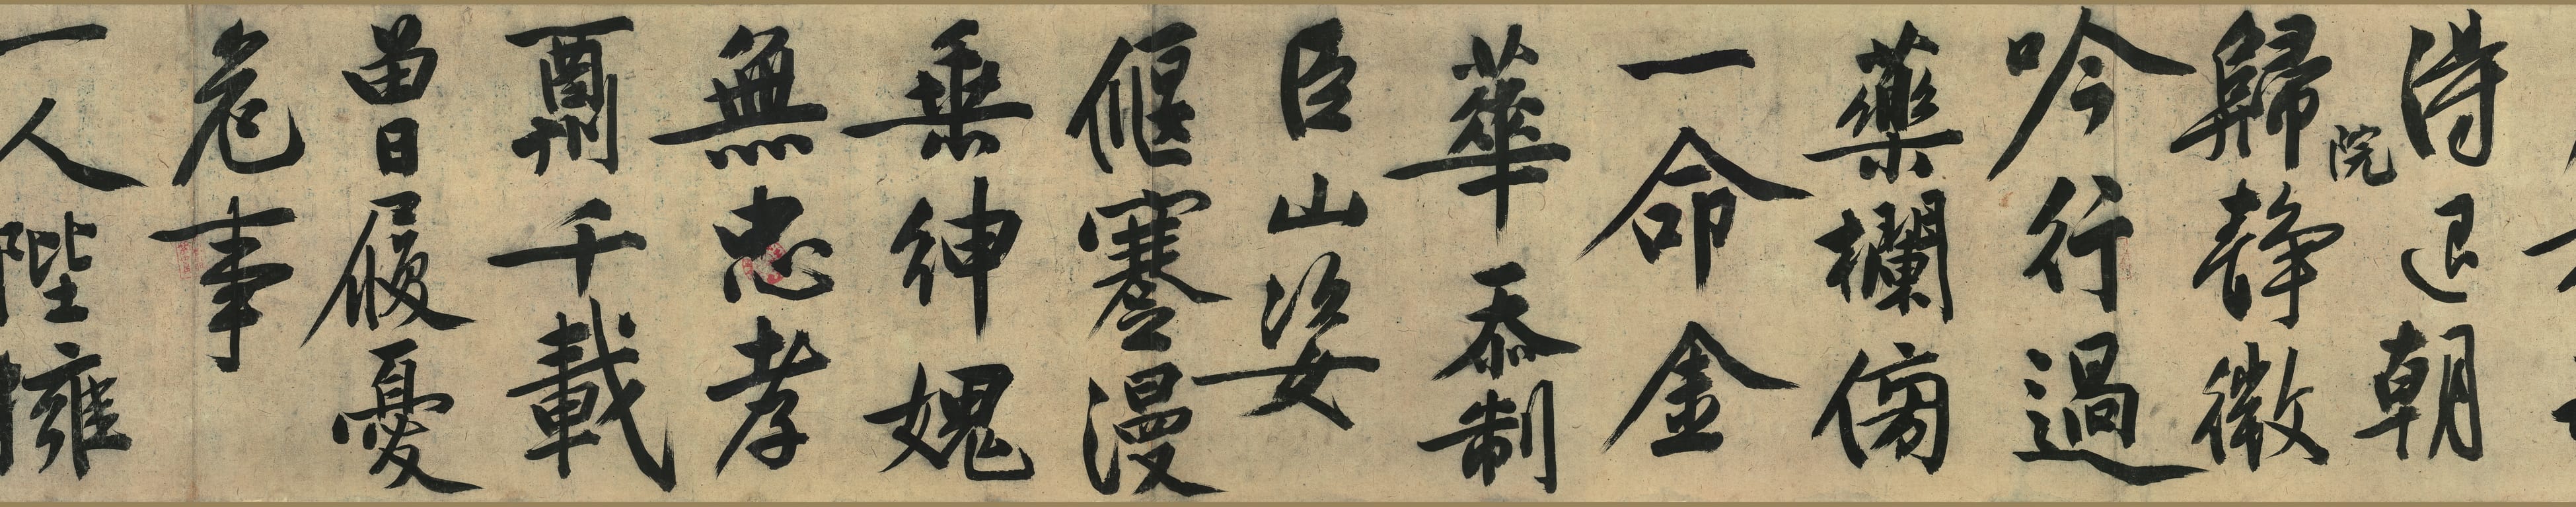 得退朝
歸静院微
吟行過
藥欄傍
一命金
華忝制
臣山姿
偃蹇漫
垂紳媿
無忠孝
酬千載
曾履憂
危事
一人陛擁